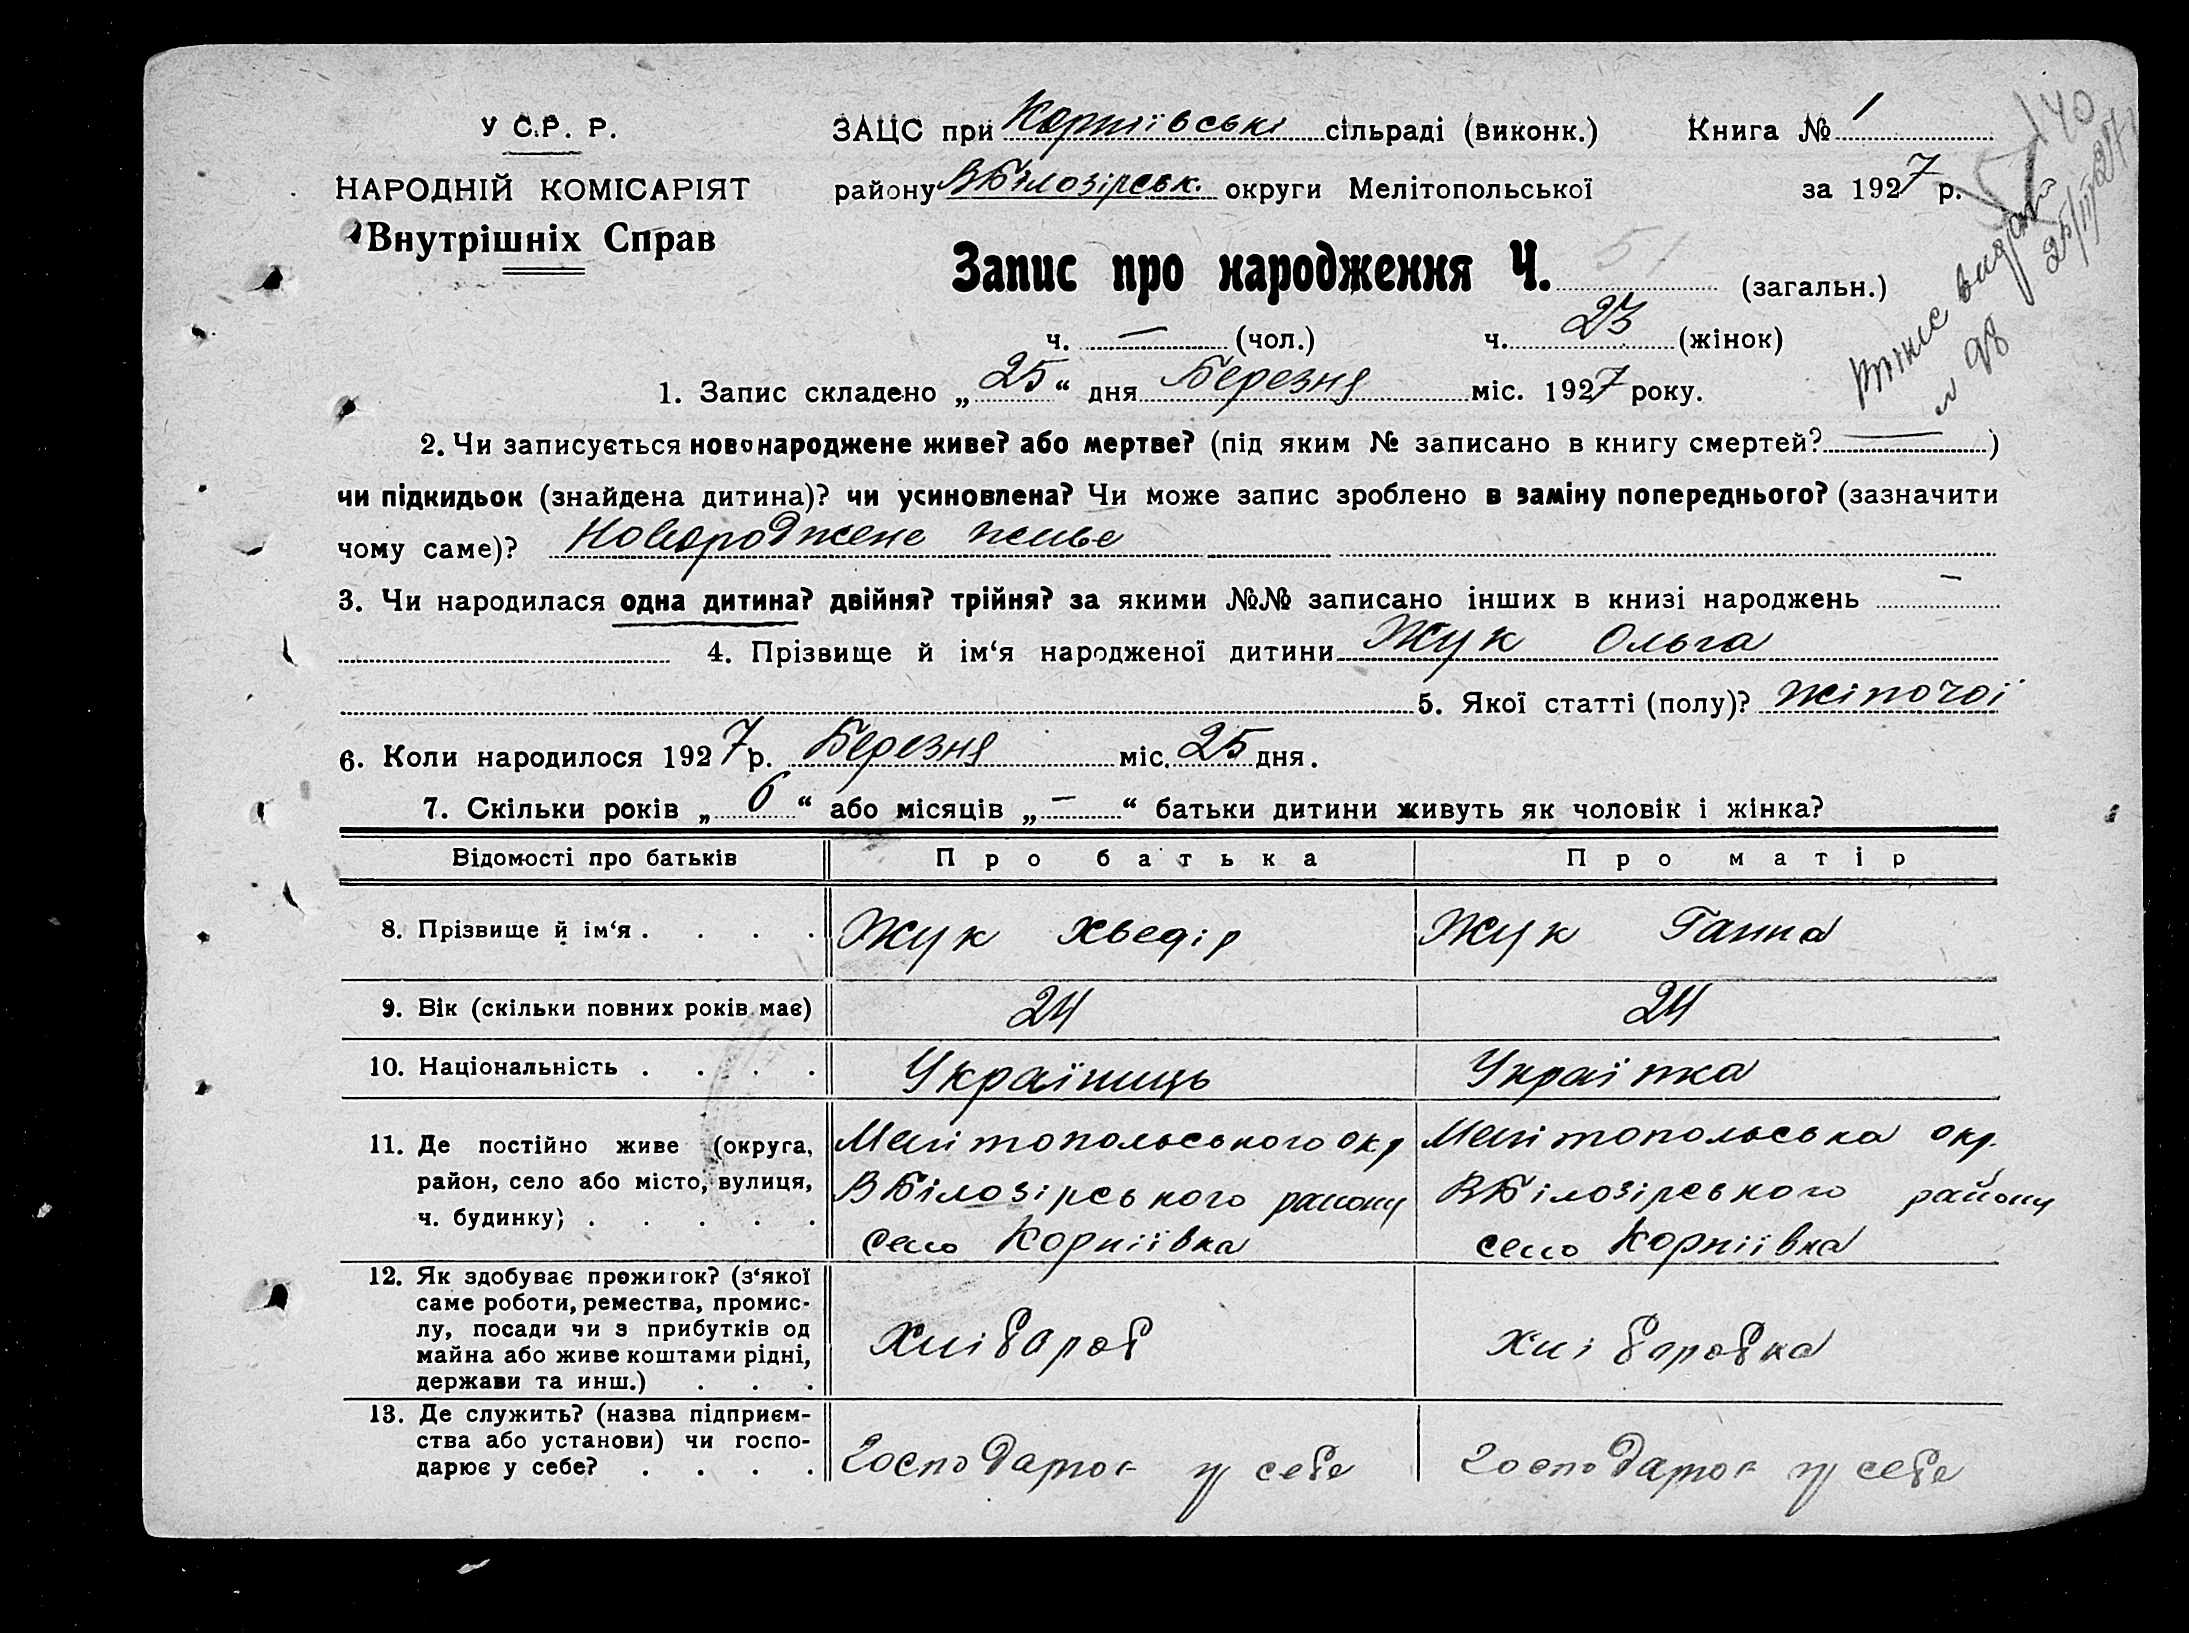 У С.Р. Р.
НАРОДНІЙ КОМІСАРІЯТ
Внутрішніх Справ
ЗАЦС при Корніївські сільраді (виконк.) Книга № 1
району ВБілозірськ. округи Мелітопольської за 1927 р.
140
Запис про народження Ч. 51 (загальн.)
ч. — (чол.) ч. 23 (жінок)
1. Запис складено „25“ дня Березня міс. 1927 року.
2. Чи записується новонароджене живе? або мертве? (під яким № записано в книгу смертей? — )
чи підкидьок (знайдена дитина)? чи усиновлена? Чи може запис зроблено в заміну попереднього? (зазначити
чому саме)? Новороджене живе
3. Чи народилася одна дитина? двійня? трійня? за якими №№ записано інших в книзі народжень —
4. Прізвище й ім‘я народженої дитини Жук Ольга
5. Якої статті (полу)? жіночої
6. Коли народилося 1927 р. Березня міс. 25 дня.
7. Скільки років „6“ або місяців „—“ батьки дитини живуть як чоловік і жінка?
Відомості про батьків Про батька Про матір
8. Прізвище й ім‘я . . . . Жук Хведір Жук Ганна
9. Вік (скільки повних років має) 24 24
10. Національність . . . . Україниць Українка
11. Де постійно живе (округа, Мелітопольського окр Мелітопольська окр.
район, село або місто, вулиця, ВБілозірського району ВБілозірського району
ч. будинку) . . . . . село Корніївка село Корніївка
12. Як здобуває прожиток? (з‘якої
саме роботи, ремества, промис-
лу, посади чи з прибутків од Хлібароб Хліборобка
майна або живе коштами рідні,
держави та инш.) . . .
13. Де служить? (назва підприєм-
ства або установи) чи госпо-
дарює у себе? . . . . Господарює у себе Господарює у себе